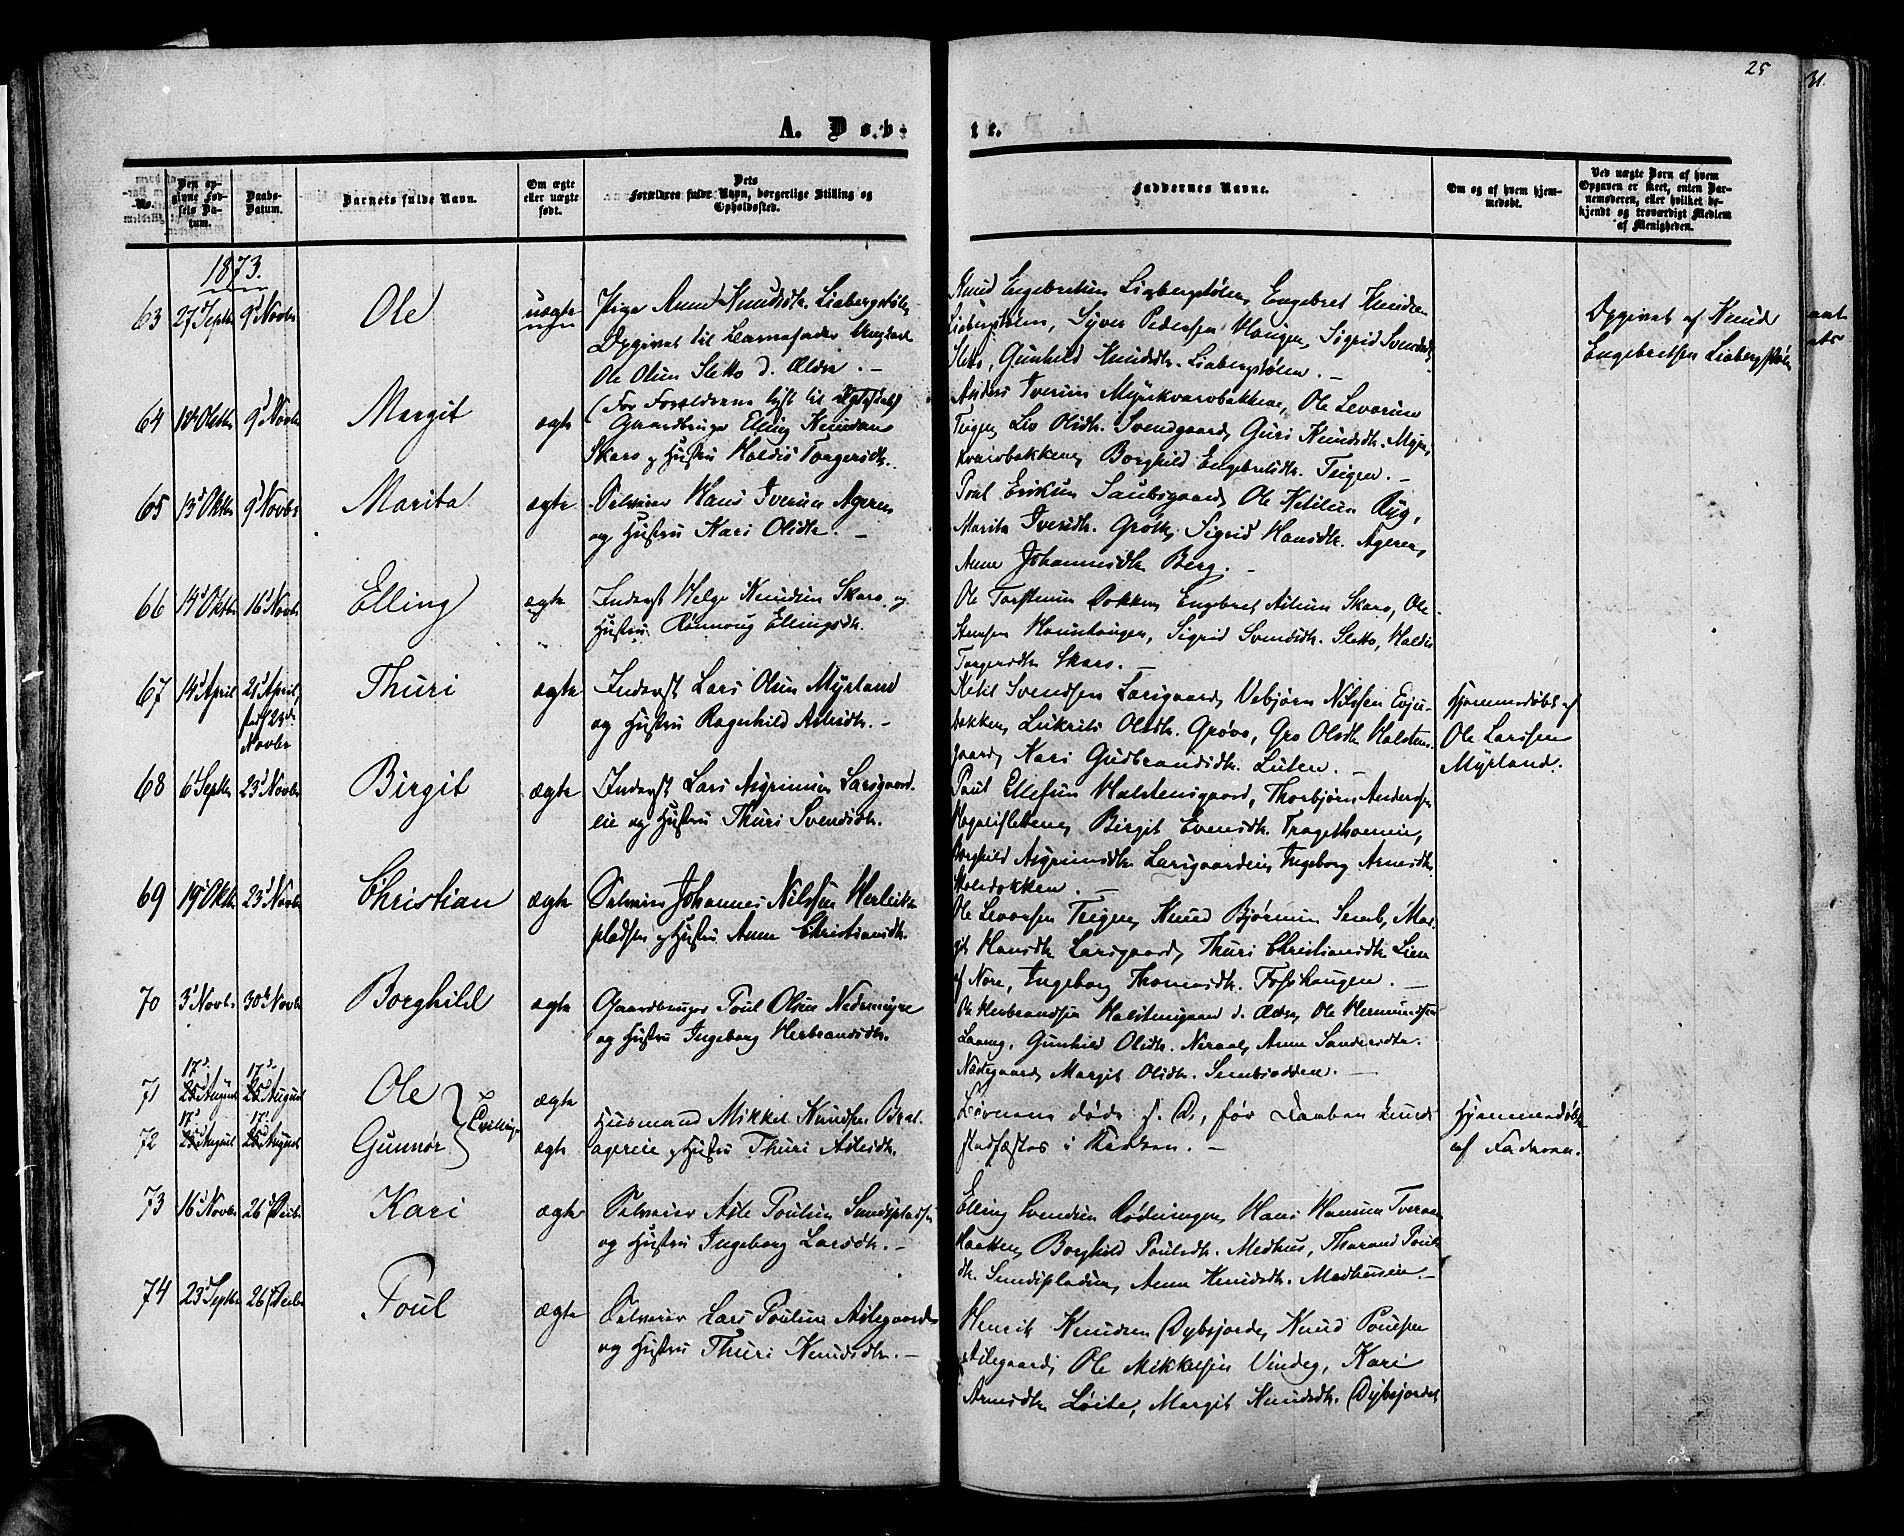 25
31.
A. Døbte.
No.
Den opgivne Fødsels Datum.
Daabs-Datum.
Barnets fulde Navn.
Om ægte eller uægte født.
Dets Forældres fulde Navn, borgerlige Stilling og Opholdssted.
Faddernes Navne.
Om og af hvem hjemmedøbt.
Ved uægte Børn af hvem Opgaven er skeet, enten Barnemoderen, eller hvilket bekjendt og troværdigt Medlem af Menigheden.
1873.
63 27d Septbr 9d Novbr Ole uægte
Pige Anne Knudsdtr. Liabergstølen
Opgivet til Barnefader Ungkarl
Ole Olsen Sletto d. Ældre. –
Knud Engebretsen Liabergstølen, Engebret Knudsen
Liabergstølen, Syver Pedersen Haugen, Sigrid Svendsdtr.
Sletto, Gunhild Knudsdtr. Liabergstølen. –
Opgivet af Knud
Engebretsen Liabergstølen
64 18d Oktbr 9d Novbr Margit ægte
Gaardbruger Elling Knudsen
Skaro og Hustru Haldis Torgersdtr.
Anders Iversen Myrekvarvbakkene, Ole Levorsen
Teigen, Liv Olsdtr. Svendgaard, Guri Knudsdtr. Myre
kvarvbakken, Borghild Engebretsdtr. Teigen. –
65 13d Oktbr 9d Novbr Marita ægte
Selveier Hans Iversen Ageren
og Hustru Kari Olsdtr. –
Poul Eriksen Saubsgaard, Ole Ketilsen Ryg,
Marita Iversdtr. Groth, Sigrid Hansdtr. Ageren,
Anne Johannesdtr. Berg. –
66 14d Oktbr 16d Novbr Elling ægte
Inderst Helge Knudsen Skaro og
Hustru Rannoug Ellingsdtr.
Ole Torstensen Dokken, Engebret Aslesen Skaro, Ole
Haugen, Sigrid Svendsdtr. Sletto, Haldis
Torgersdtr. Skaro. –
67 14d April 21d April, 23d Novbr Thuri ægte
Inderst Lars Olsen Myrland
og Hustru Ragnhild Aslesdtr. –
Ketil Svendsen Larsgaard, Vebjørn Nilssen Evju-
bakken, Lukrits Olsdtr. Grøvo, Gro Olsdtr. Halstens-
gaard, Kari Gudbrandsdtr. Luten. –
Hjemmedøbt af
Ole Larssen
Myrland.
68 6d Septbr 23d Novbr Birgit ægte
Inderst Lars Asgrimsen Larsgaard-
lie og Hustru Thuri Svendsdtr.
Poul Ellefsen Halstensgaard, Thorbjørn Andersen
Hagaslettene, Birgit Evensdtr. Tragethoensen,
Borghild Asgrimsdtr. Larsgaardlien, Ingeborg Arnesdtr.
69 19d Oktbr 23d Novbr Christian ægte
Selveier Johannes Nilssen Herleiks-
pladsen og Hustru Anne Christiansdtr.
Ole Levorsen Teigen, Knud Bjørnsen Semb, Mar-
git Hansdtr. Larsgaard, Thuri Christiansdtr. Lien
af Nore, Ingeborg Thomasdtr. Fosshaugen. –
70 5d Novbr 30te Novbr Borghild ægte
Gaardbruger Poul Olsen Nedremyre
og Hustru Ingeborg Herbrandsdtr.
Ole Herbrandsen Halstensgaard d. Ældre, Ole Hermundsen
Laaeg, Gunhild Olsdtr. Neraal, Anne Sandersdtr.
Nædegaard, Margit Olsdtr. Sembsodden. –
71 17d August 17d August Ole ægte
72 17d August 17d August Gunnor ægte
Tvillinger
Husmand Mikkel Knudsen Bræk-
agerie og Hustru Thuri Aslesdtr.
Børnene døde s. D., før Daaben kunde
stadfæstes i Kirken. –
Hjemmedøbte
af Faderen.
73 16d Novbr 26d Decbr Kari ægte
Selveier Asle Poulsen Sundspladsen
og Hustru Ingeborg Larsdtr. –
Elling Svendsen Rødningen, Hans Hansen Tveraa
bakken, Borghild Poulsdtr. Medhus, Tharand Pouls
dtr. Sundspladsen, Anne Knudsdtr. Medhusen. –
74 23d Septbr 26d Decbr Poul ægte
Selveier Lars Poulsen Aslegaard
og Hustru Thuri Knudsdtr. –
Henrik Knudsen Dybsjorde, Knud Poulsen
Aslegaard, Ole Mikkelsen Vindeg, Kari
Arnesdtr. Løite, Margit Knudsdtr. Dybsjordet